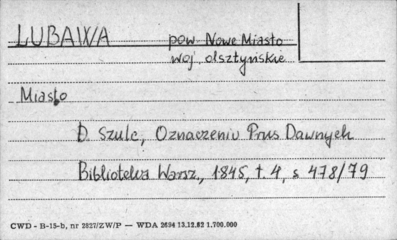 LUBAWA
pow. Nowe Miasto
woj. olsztyńskie
Miasto
D. Szulc, O znaczeniu Prus Dawnych
Biblioteka Warsz., 1845, t. 4, s 478/79
CWD - B-15-b, nr 2827/ZW/P — WDA 2694 13.12.62 1.700.000